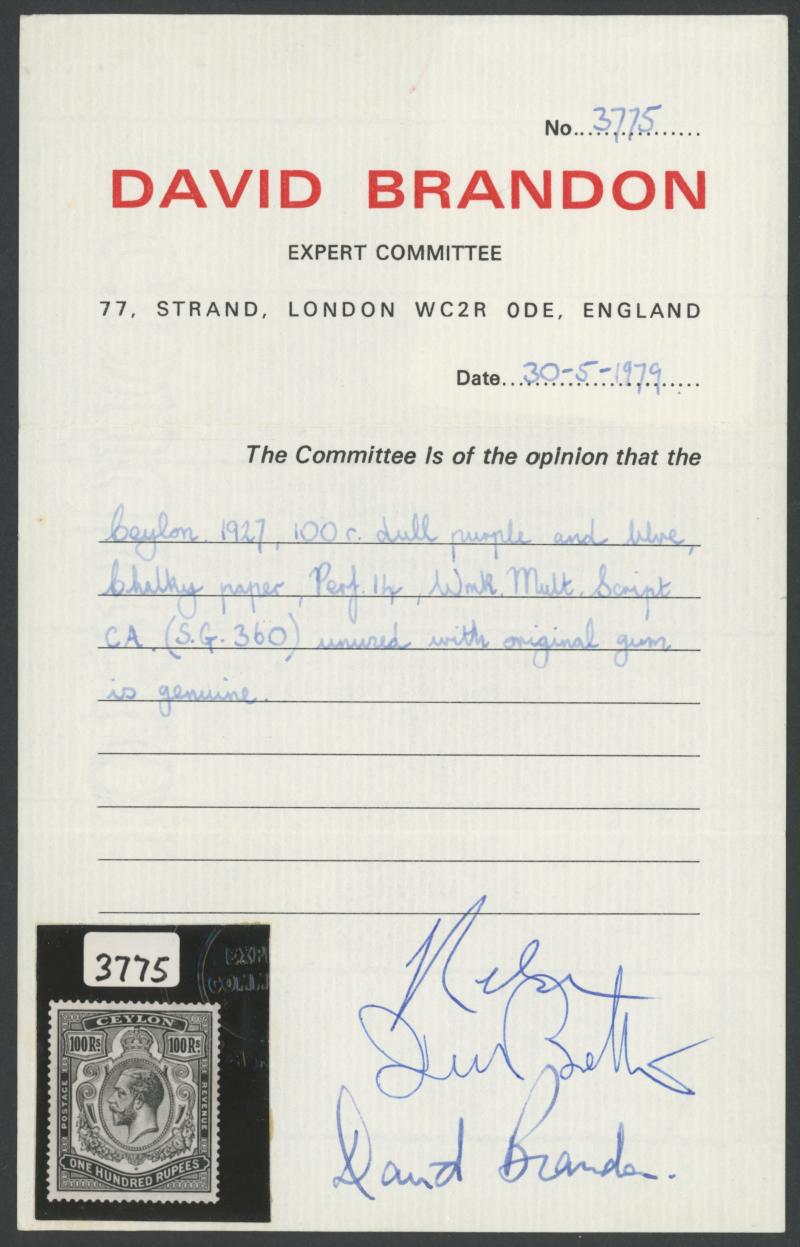 No. 3775
DAVID BRANDON
EXPERT COMMITTEE
77, STRAND, LONDON WC2R 0DE, ENGLAND
Date 30-5-1979
The Committee Is of the opinion that the
Ceylon. 1927, 100r. dull purple and blue,
Chalky paper, Perf. 14, Wmk. Mult. Script
CA. (S.G. 360) unused with original gum
is genuine.
3775
EXP
COMM
CEYLON
100Rs 100Rs
POSTAGE
REVENUE
ONE HUNDRED RUPEES
David Brandon.